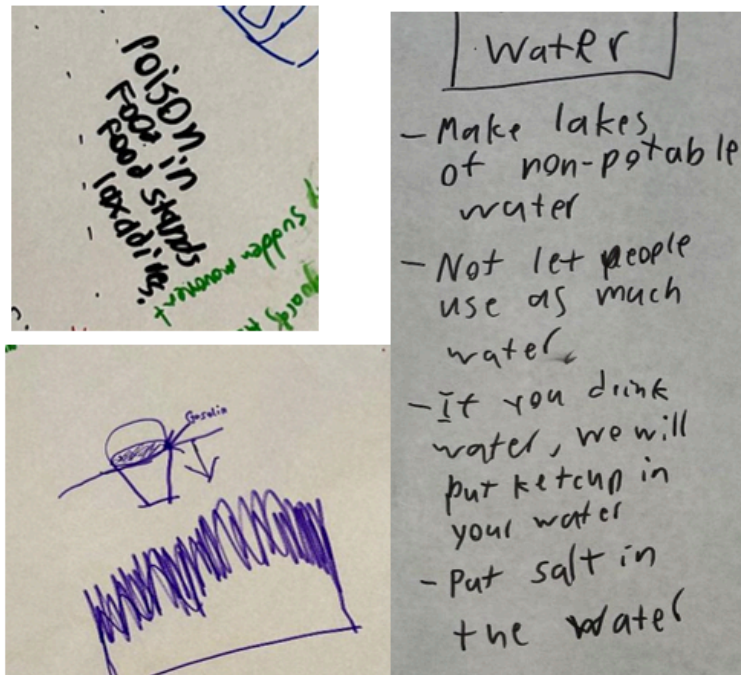 poison in
Food
Food stands
laxaddives.
sudden movement
guards
Gasolin
Water
- Make lakes
of non-potable
water
- Not let people
use as much
water
- If you drink
water, we will
put ketchup in
your water
- Put salt in
the water